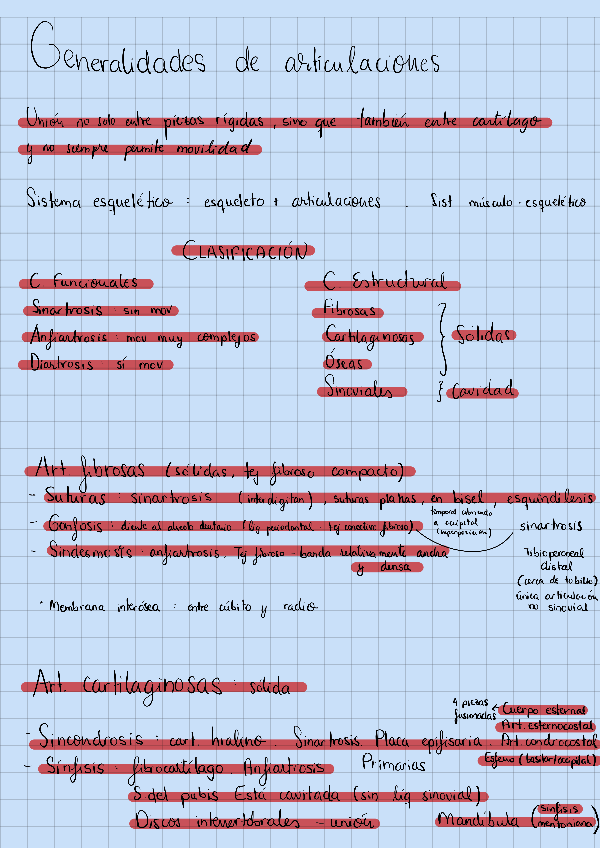 Generalidades de articulaciones
Unión no solo entre piezas rígidas, sino que también entre cartílago
y no siempre permite movilidad
Sistema esquelético : esqueleto + articulaciones . Sist músculo-esquelético
CLASIFICACIÓN
C Funcionales
Sinartrosis sin mov
Anfiartrosis : mov muy complejos
Diartrosis sí mov
C. Estructural
Fibrosas
Cartilaginosas
Óseas
Sólidas
Sinoviales
Cavidad
Art fibrosas (sólidas, tej fibroso compacto)
- Suturas : sinartrosis (interdigitan), suturas planas, en bisel, esquindilesis
temporal cubriendo
a occipital
(superposición)
- Gónfosis : diente al alveolo dentario (lig periodontal - tej conectivo fibroso)
sinartrosis
- Sindesmosis : anfiartrosis, Tej fibroso - banda relativamente ancha
y densa
Tibioperoneal
distal
(cerca de tobillo)
única articulación
no sinovial
* Membrana interósea : entre cúbito y radio
Art. cartilaginosas : sólida
4 piezas
fusionadas
Cuerpo esternal
Art. esternocostal
- Sincondrosis : cart. hialino. Sinartrosis. Placa epifisaria. Art. condrocostal
- Sínfisis : fibrocartílago. Anfiartrosis
Primarias
Esfeno (basilar/occipital)
S del pubis Está cavitada (sin líq sinovial)
Discos intervertebrales - unión
Mandíbula (sínfisis
mentoniana)